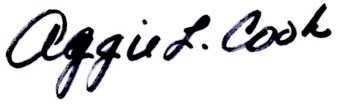 Aggie L. Cook